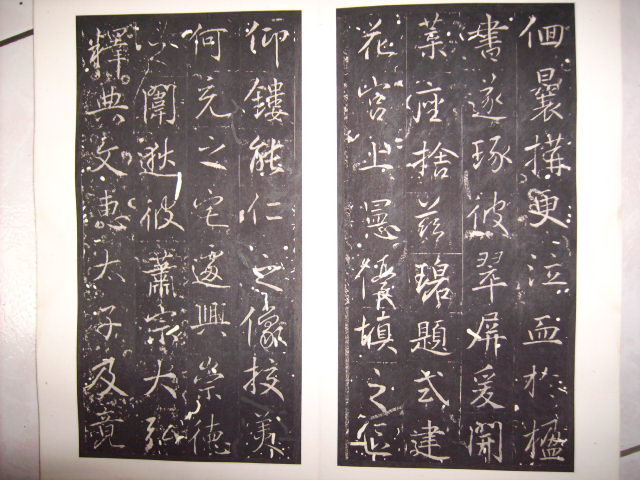 佪曩搆更泣血於楹
書遂琢彼翠屏爰開
葉座捨茲碧題式建
花宮上憑優填之匠
仰鏤能仁之像校美
何充之宅遽興崇德
之闈逖彼蕭宗大弘
釋典文惠太子及竟